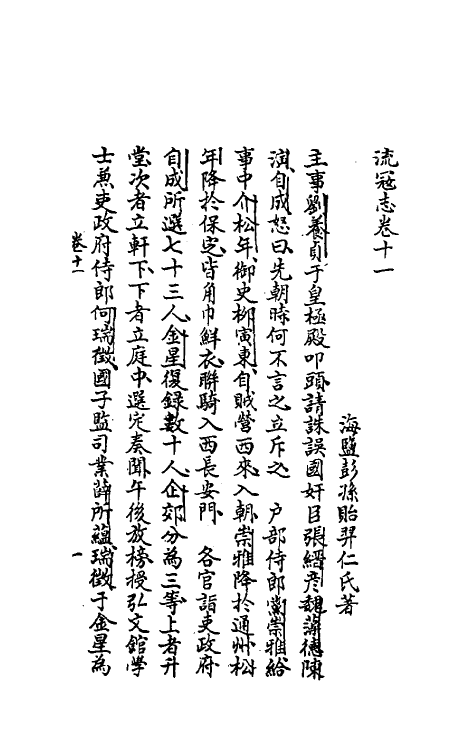 流寇志卷十一
海鹽彭孫貽羿仁氏著
主事劉養貞于皇極殿叩頭請誅誤國奸臣張縉彦魏藻德陳
演自成怒曰先朝時何不言之立斥之　戶部侍郎黨崇雅給
事中介松年御史柳寅東自賊營西來入朝崇雅降於通州松
年降於保定皆角巾鮮衣聯騎入西長安門　各官詣吏政府
自成所選七十三人金星復錄數十人企郊分為三等上者升
堂次者立軒下下者立庭中選定奏聞午後放榜授弘文館學
士兼吏政府侍郎何瑞徵國子監司業薛所蘊瑞徵于金星為
卷十一
一